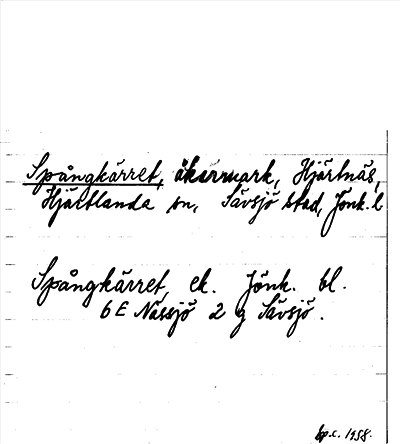 Spångkärret, åkermark, Hjärtnäs,
Hjärtlanda sn, Sävsjö stad, Jönk. l
Spångkärret, ek. Jönk. bl.
6E Nässjö 2 g Sävsjö.
Ep.c. 1958.